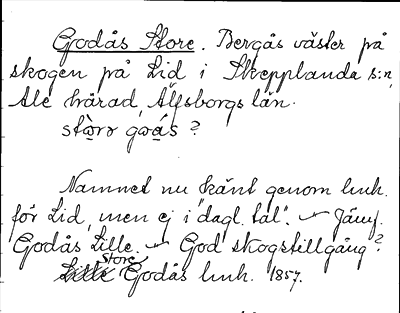 Godås Store. Bergås väster på
skogen på Lid i Skepplanda s:n,
Ale härad, Älfsborgs län.
stòrə goás?
Namnet nu "känt genom luh.
för Lid, men ej i dagl. tal". – Jämf.
Godås Lille. – God skogstillgång?
Store Godås luh. 1857.